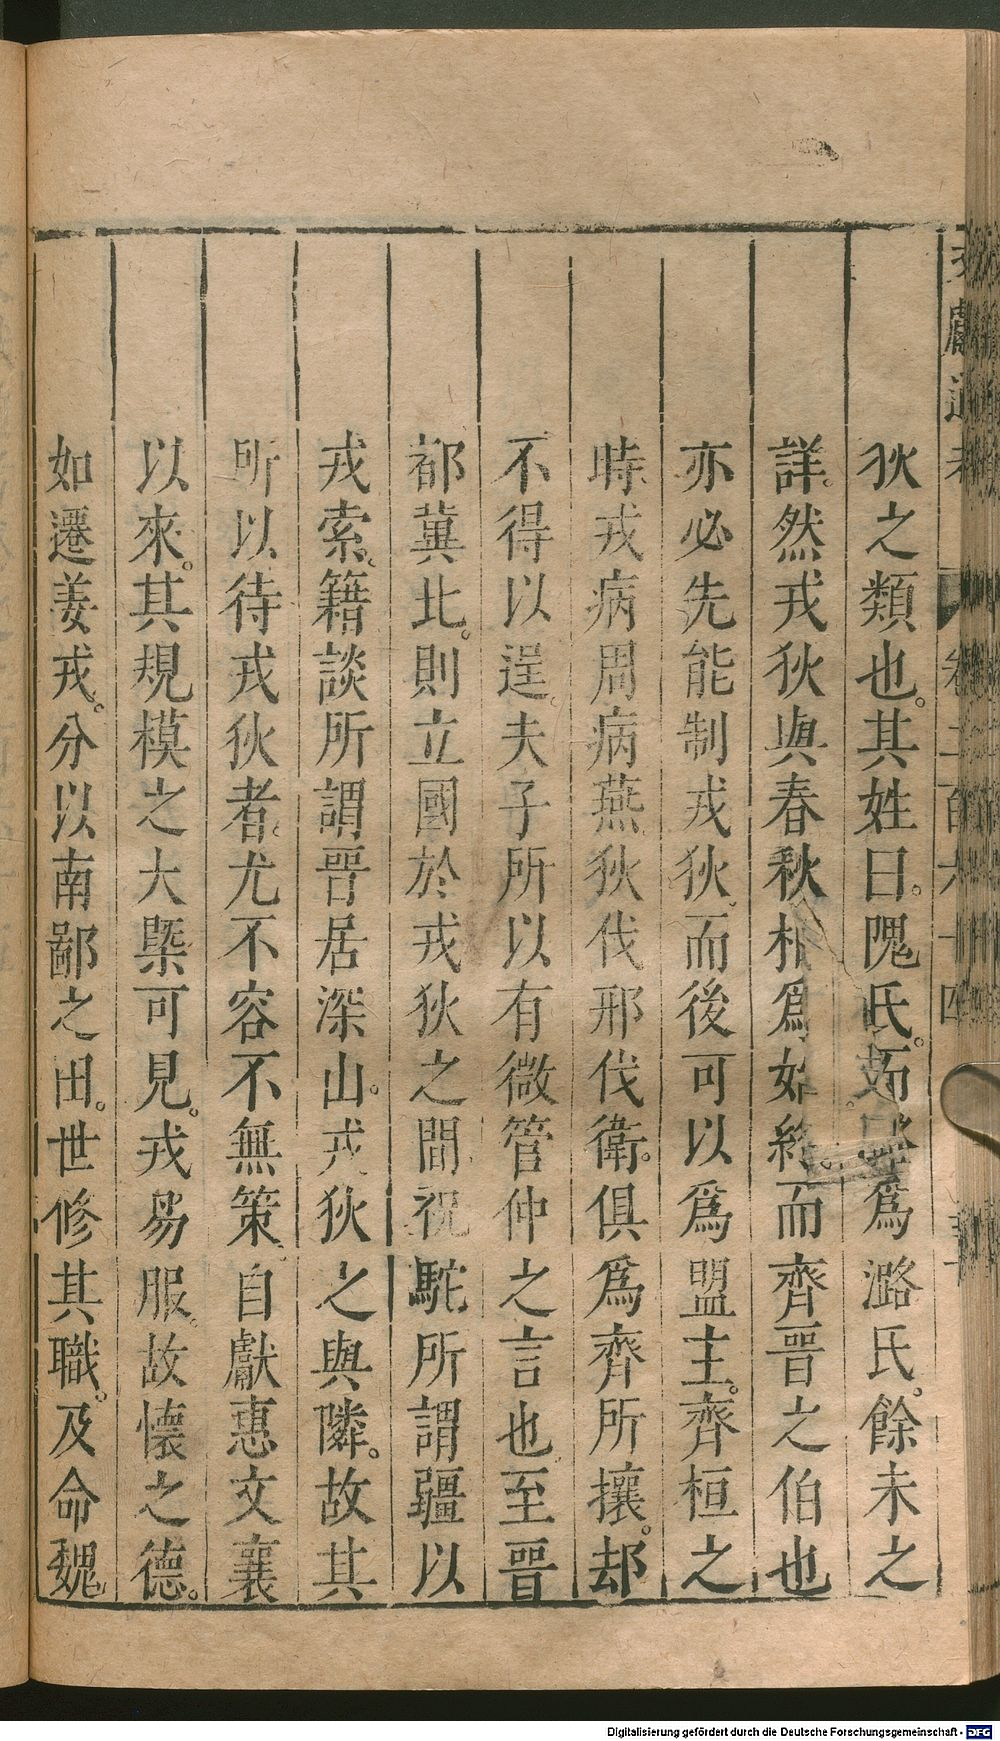 狄之類也。其姓曰。隗氏。爲潞氏。餘未之
詳。然戎狄與春秋相爲始終。而齊晉之伯也
亦必先能制戎狄。而後可以爲盟主。齊桓之
時。戎病周。病燕。狄伐邢伐衛。俱爲齊所攘。却
不得以逞。夫子所以有微管仲之言也。至晉
都冀北。則立國於戎狄之間。祝駝所謂疆以
戎索。籍談所謂晉居深山。戎狄之與隣。故其
所以待戎狄者。尤不容不無策。自獻惠文襄
以來。其規模之大槩可見。戎易服。故懷之德。
如遷姜戎。分以南鄙之田。世修其職。及命魏
Digitalisierung gefördert durch die Deutsche Forschungsgemeinschaft - DFG